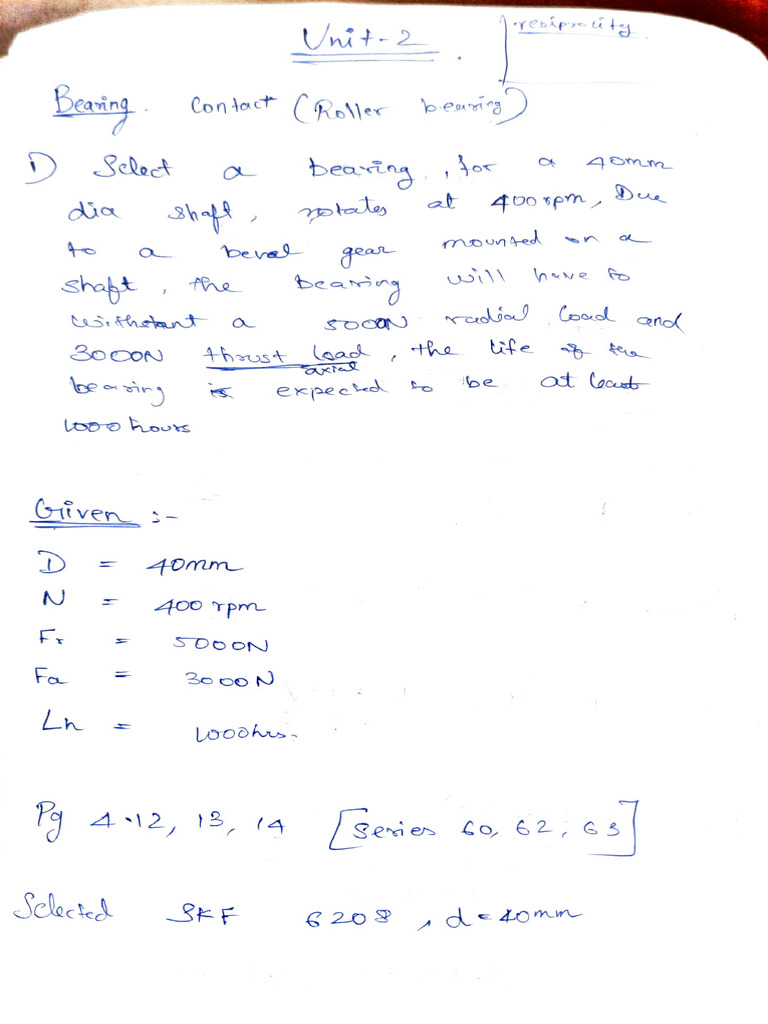 Unit-2
resiprocity
Bearing. Contact (Roller bearing)
1) Select a bearing, for a 40mm
dia shaft, rotates at 400rpm, Due
to a bevel gear mounted on a
shaft, the bearing will have to
withstant a 5000N radial load and
3000N thrust load, the life of the
axial
bearing is expected to be at least
1000 hours
Given :-
D = 40mm
N = 400 rpm
Fr = 5000N
Fa = 3000N
Lh = 1000hrs.
Pg 4.12, 13, 14 [Series 60, 62, 63]
Selected SKF 6208, d = 40mm